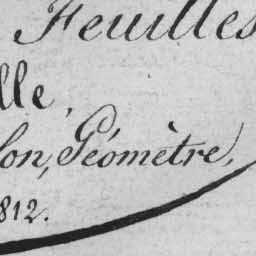 Feuilles
lle,
lon, Géomètre,
812.